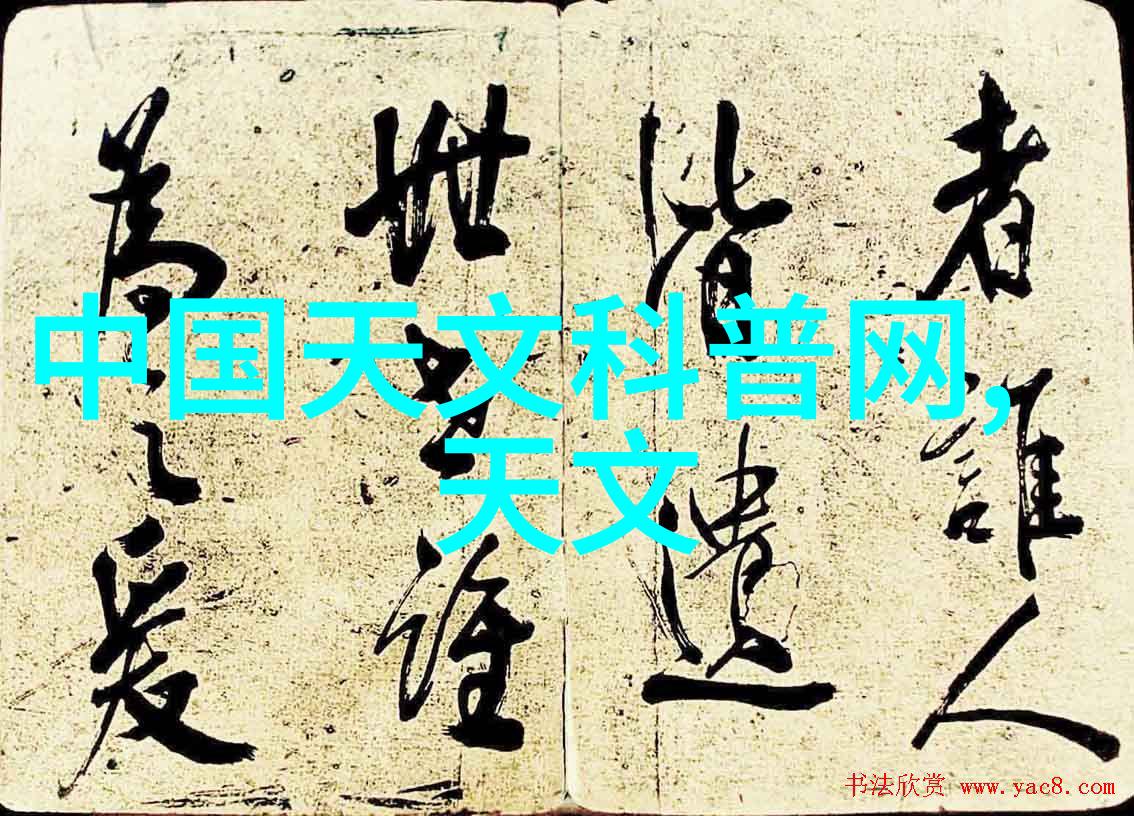 中国天文科普网,
天文
者誰人
皆遺
世誰
為之爰
书法欣赏 www.yac8.com